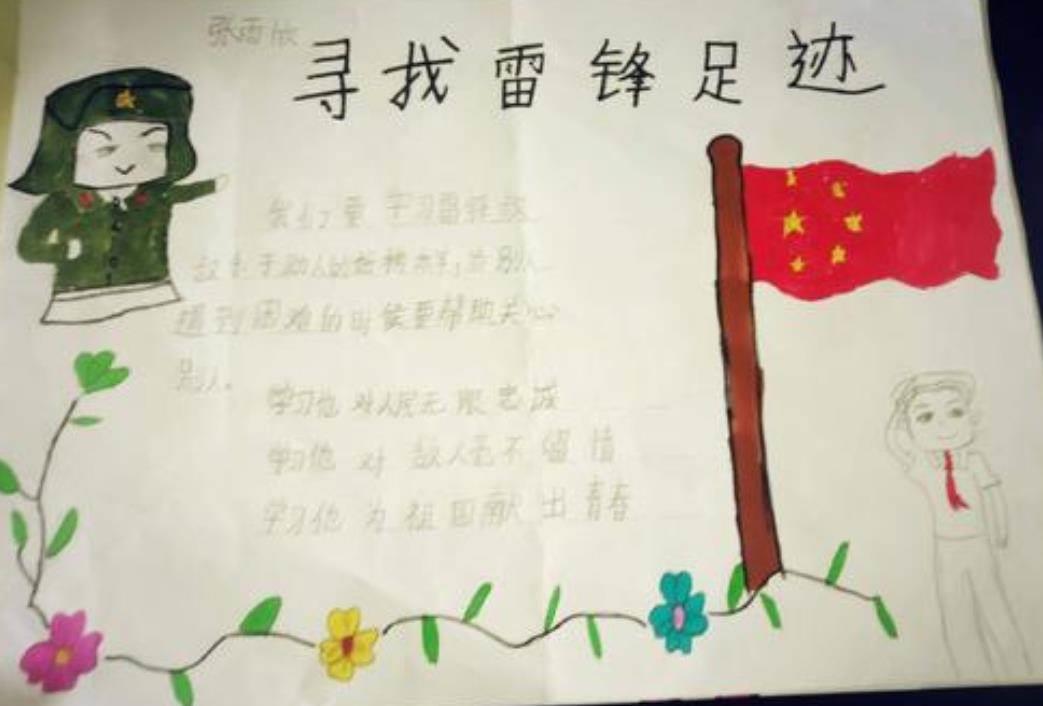 张雨欣
寻找雷锋足迹
我们要学习雷锋叔
叔乐于助人的精神,当别人
遇到困难的时候要帮助关心
别人。
学习他对人民无限忠诚
学习他对敌人毫不留情
学习他为祖国献出青春